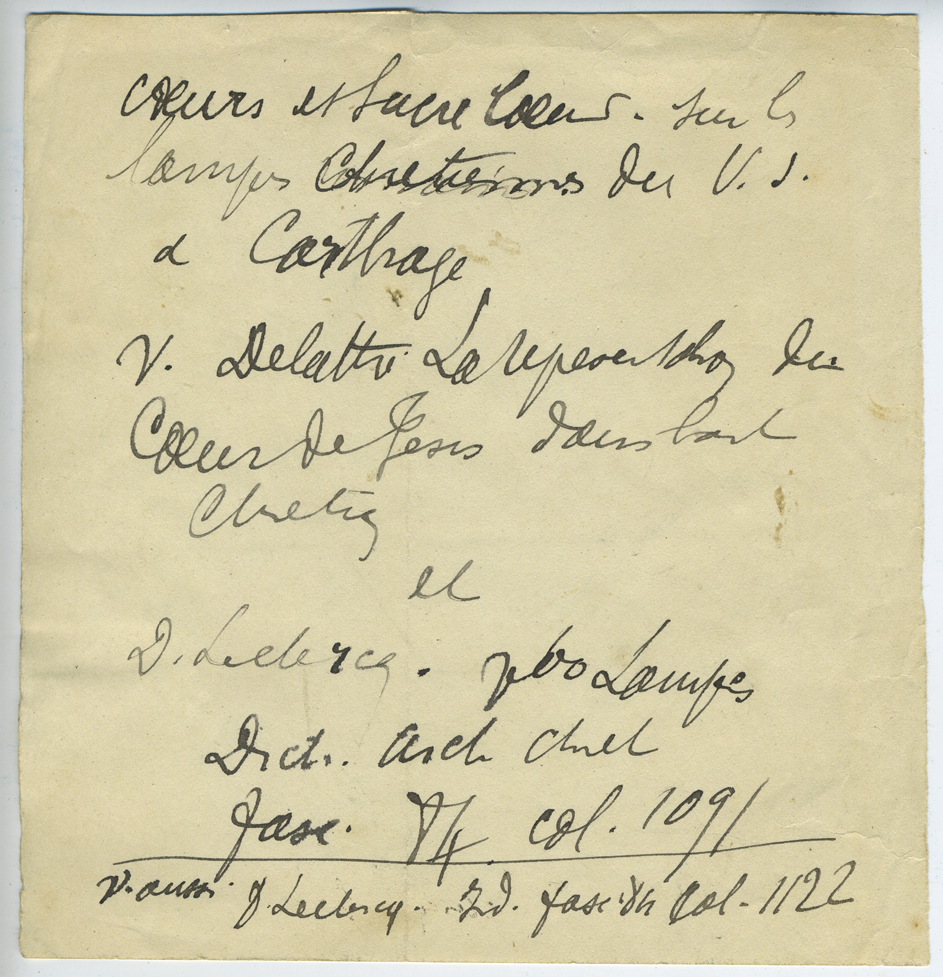 Cœurs et Sacré Cœur - sur les
lampes chretiennes du V. S.
a Carthage
V. Delattre La representation du
Cœur de Jesus dans l'art
Chretien
et
D. Leclercq. vbo Lampes
Dict. arch chret
fasc. col. 1091
V. aussi D. Leclercq. Id. fasc. col. 1122